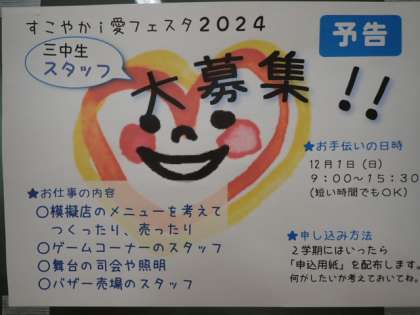 すこやかｉ愛フェスタ２０２４
予告
三中生
スタッフ
大募集！！
★お手伝いの日時
１２月１日（日）
９：００～１５：３０
（短い時間でもＯＫ）
★お仕事の内容
○模擬店のメニューを考えて
つくったり、売ったり
○ゲームコーナーのスタッフ
○舞台の司会や照明
○バザー売場のスタッフ
★申し込み方法
２学期にはいったら
「申込用紙」を配布します。
何がしたいか考えておいてね。